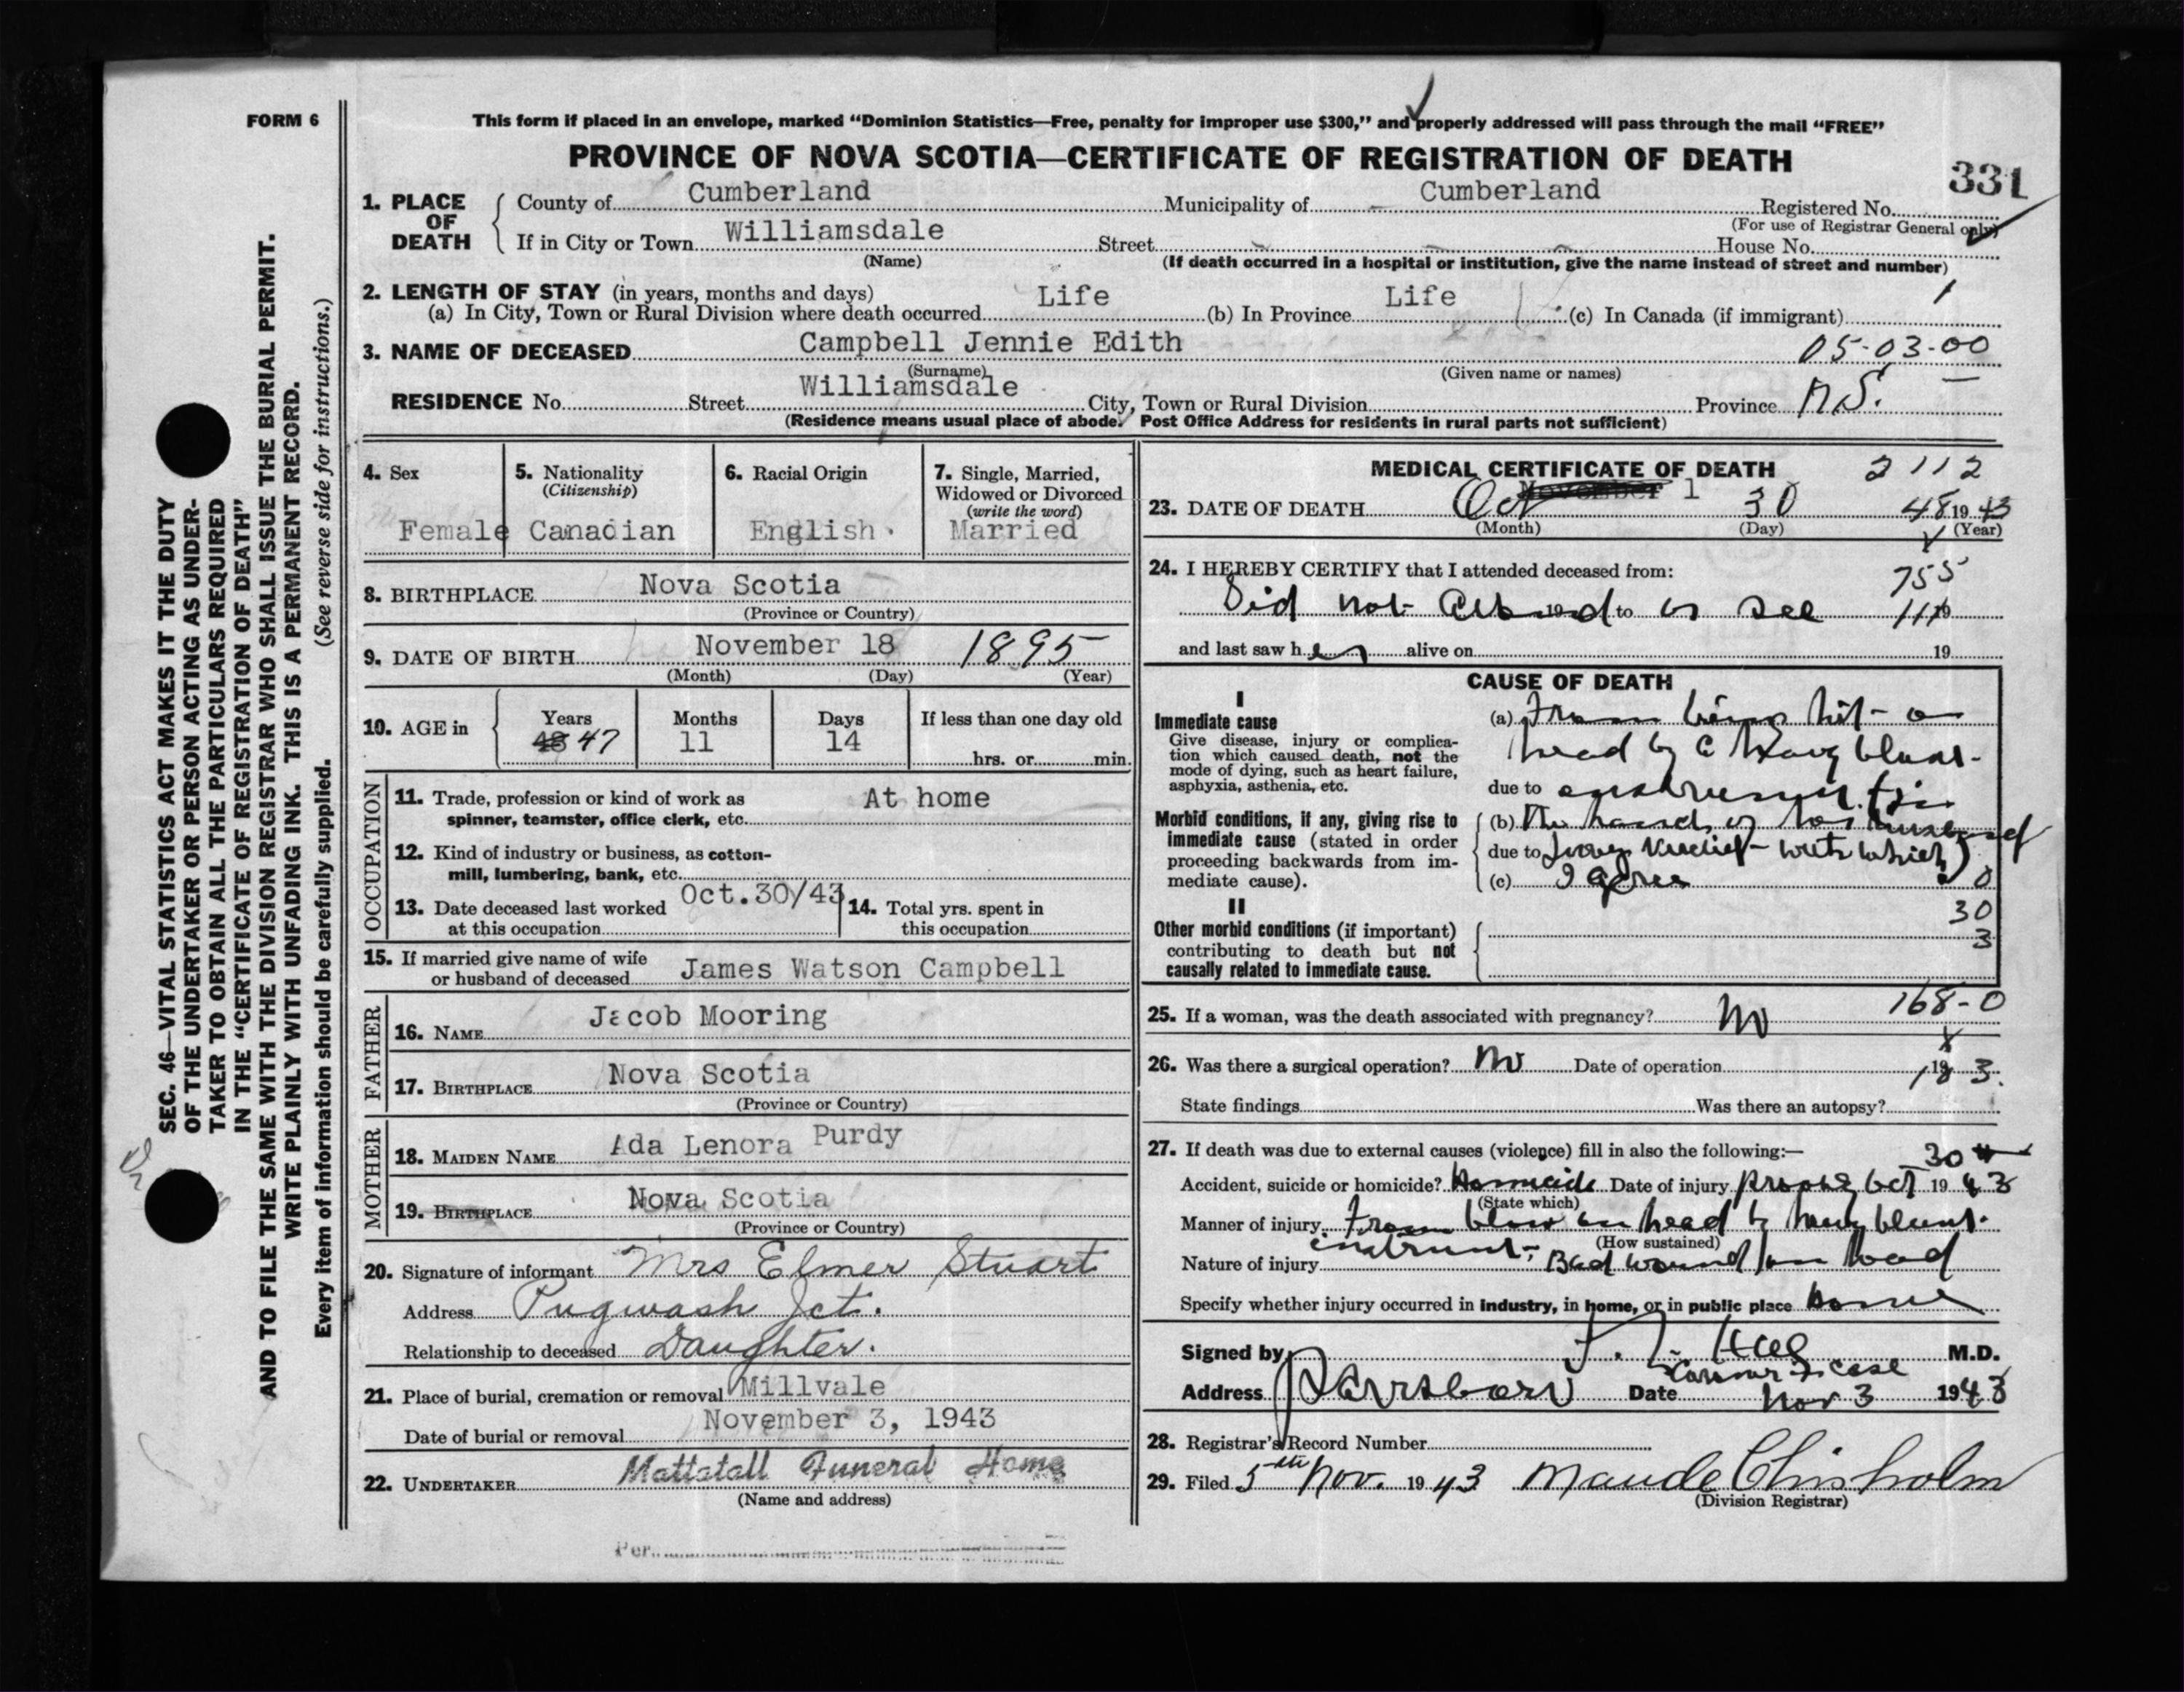 FORM 6
This form if placed in an envelope, marked "Dominion Statistics—Free, penalty for improper use $300," and properly addressed will pass through the mail "FREE"
PROVINCE OF NOVA SCOTIA—CERTIFICATE OF REGISTRATION OF DEATH
331
1. PLACE OF DEATH
County of Cumberland Municipality of Cumberland Registered No.
(For use of Registrar General only)
If in City or Town Williamsdale Street House No.
(Name) (If death occurred in a hospital or institution, give the name instead of street and number)
2. LENGTH OF STAY (in years, months and days)
(a) In City, Town or Rural Division where death occurred Life (b) In Province Life (c) In Canada (if immigrant)
3. NAME OF DECEASED Campbell Jennie Edith 05-03-00
(Surname) (Given name or names)
RESIDENCE No. Street Williamsdale City, Town or Rural Division Province N.S.
(Residence means usual place of abode. Post Office Address for residents in rural parts not sufficient)
4. Sex
Female
5. Nationality
(Citizenship)
Canadian
6. Racial Origin
English
7. Single, Married, Widowed or Divorced
(write the word)
Married
8. BIRTHPLACE Nova Scotia
(Province or Country)
9. DATE OF BIRTH November 18 1895
(Month) (Day) (Year)
10. AGE in
Years Months Days If less than one day old
48 47 11 14
hrs. or min.
OCCUPATION
11. Trade, profession or kind of work as At home
spinner, teamster, office clerk, etc.
12. Kind of industry or business, as cotton-
mill, lumbering, bank, etc.
13. Date deceased last worked Oct.30/43
at this occupation
14. Total yrs. spent in
this occupation
15. If married give name of wife
or husband of deceased James Watson Campbell
FATHER
16. NAME Jacob Mooring
17. BIRTHPLACE Nova Scotia
(Province or Country)
MOTHER
18. MAIDEN NAME Ada Lenora Purdy
19. BIRTHPLACE Nova Scotia
(Province or Country)
20. Signature of informant Mrs Elmer Stuart
Address Pugwash Jct.
Relationship to deceased Daughter.
21. Place of burial, cremation or removal Millvale
Date of burial or removal November 3, 1943
22. UNDERTAKER Mattatall Funeral Home
(Name and address)
Per
MEDICAL CERTIFICATE OF DEATH 2112
23. DATE OF DEATH Oct November 1 30 48 1943
(Month) (Day) (Year)
24. I HEREBY CERTIFY that I attended deceased from:
755
Did not attend 19 to or see 19
and last saw her alive on 19
CAUSE OF DEATH
I
Immediate cause
Give disease, injury or complica-
tion which caused death, not the
mode of dying, such as heart failure,
asphyxia, asthenia, etc.
(a) From being hit on
head by a heavy blunt
due to
Morbid conditions, if any, giving rise to
immediate cause (stated in order
proceeding backwards from im-
mediate cause).
(b) The hands of her husband
due to Jury verdict with which
(c) I agree 0
30
3
II
Other morbid conditions (if important)
contributing to death but not
causally related to immediate cause.
168-0
25. If a woman, was the death associated with pregnancy? No
26. Was there a surgical operation? No Date of operation 19
State findings Was there an autopsy?
27. If death was due to external causes (violence) fill in also the following:—
30
Accident, suicide or homicide? Homicide Date of injury Oct 1943
(State which)
Manner of injury From blow on head by heavy blunt
(How sustained)
instrument.
Nature of injury Bad wound on head
Specify whether injury occurred in industry, in home, or in public place home
Signed by M.D.
Address Parrsboro Date Nov 3 1943
28. Registrar's Record Number
29. Filed 5th Nov. 1943 Maude Chisholm
(Division Registrar)
SEC. 46—VITAL STATISTICS ACT MAKES IT THE DUTY
OF THE UNDERTAKER OR PERSON ACTING AS UNDER-
TAKER TO OBTAIN ALL THE PARTICULARS REQUIRED
IN THE "CERTIFICATE OF REGISTRATION OF DEATH"
AND TO FILE THE SAME WITH THE DIVISION REGISTRAR WHO SHALL ISSUE THE BURIAL PERMIT.
WRITE PLAINLY WITH UNFADING INK. THIS IS A PERMANENT RECORD.
Every item of information should be carefully supplied. (See reverse side for instructions.)